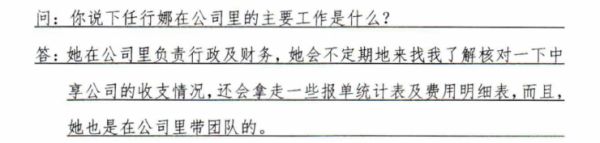 问：你说下任行娜在公司里的主要工作是什么？
答：她在公司里负责行政及财务，她会不定期地来找我了解核对一下中
享公司的收支情况，还会拿走一些报单统计表及费用明细表，而且，
她也是在公司里带团队的。